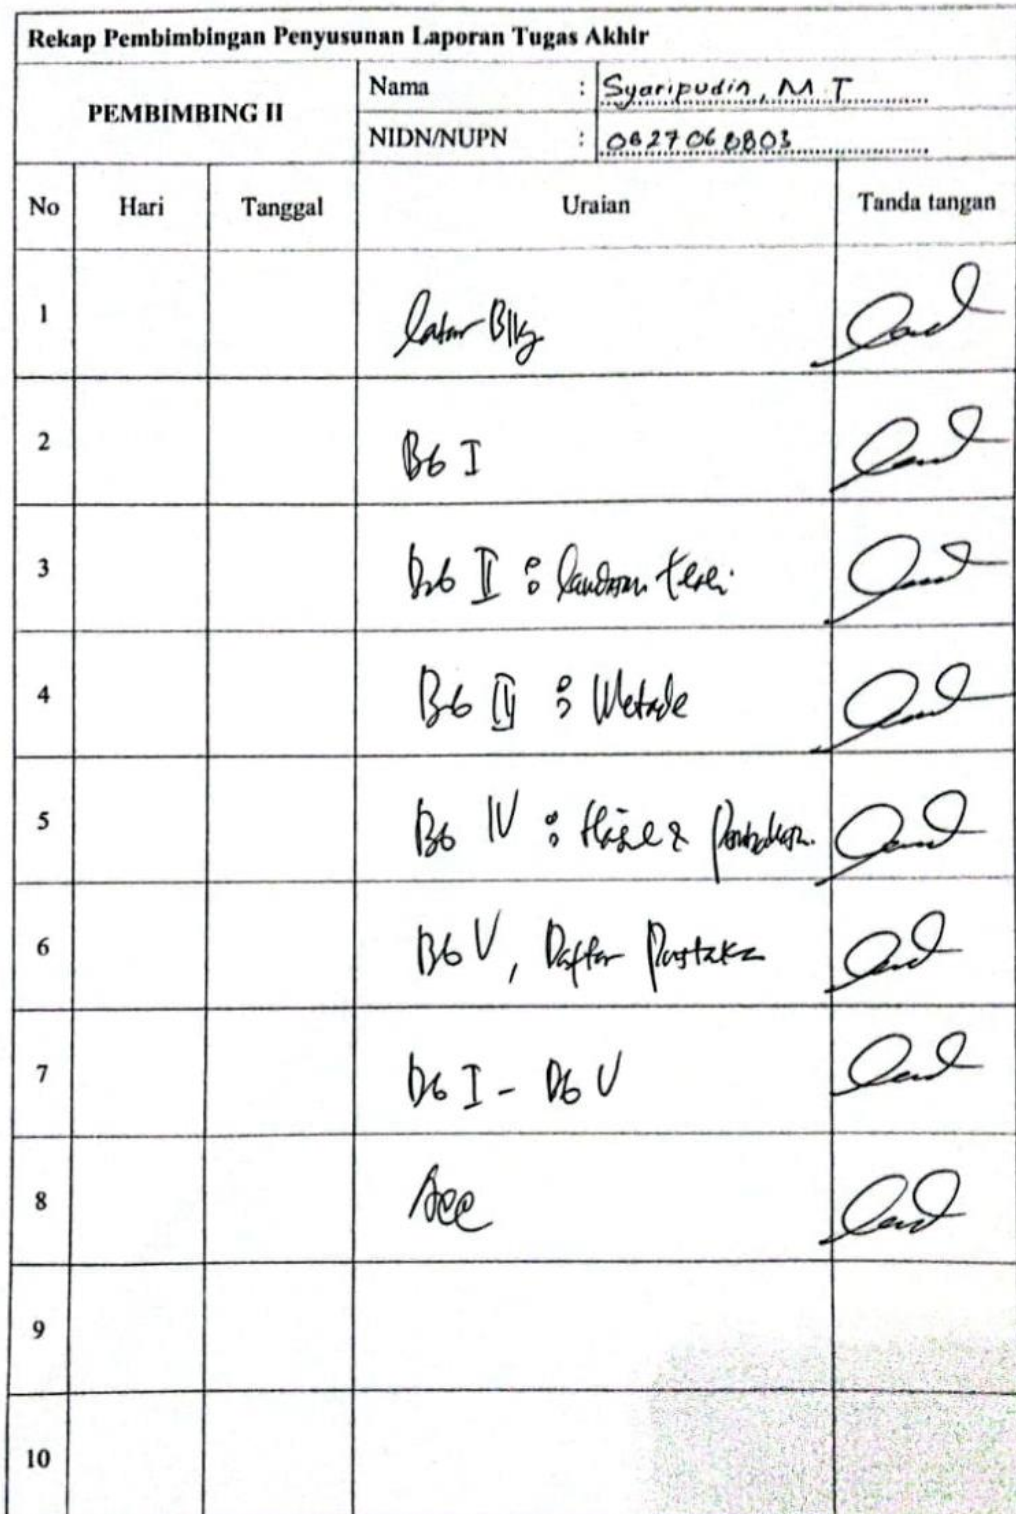 Rekap Pembimbingan Penyusunan Laporan Tugas Akhir
PEMBIMBING II
Nama : Syaripudin, M.T
NIDN/NUPN :
No Hari Tanggal Uraian Tanda tangan
1 Latar Blkg
2 Bb I
3 Bab II : landasan teori
4 Bab III : Metode
5 Bab IV : Hasil & Pembahasan
6 Bab V, Daftar Pustaka
7 Bab I - Bab V
8 Acc
9
10